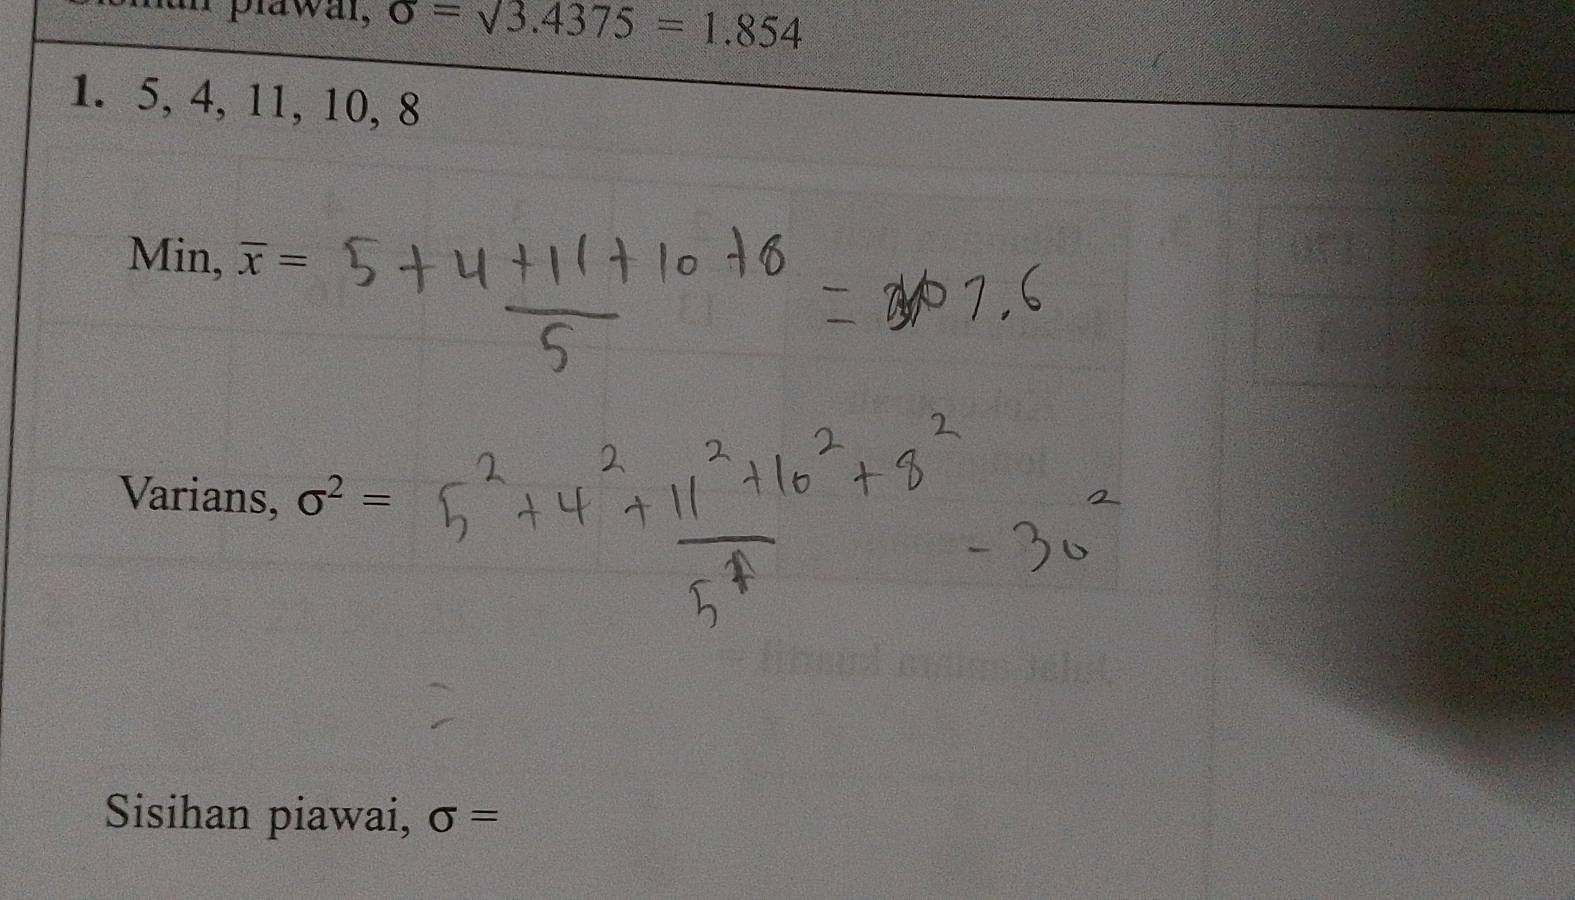 piawai, σ = √3.4375 = 1.854
1. 5, 4, 11, 10, 8
Min, x̄ = 5 + 4 + 11 + 10 + 8 = 7.6
5
Varians, σ² = 5² + 4² + 11² + 10² + 8² - 30²
5
=
Sisihan piawai, σ =